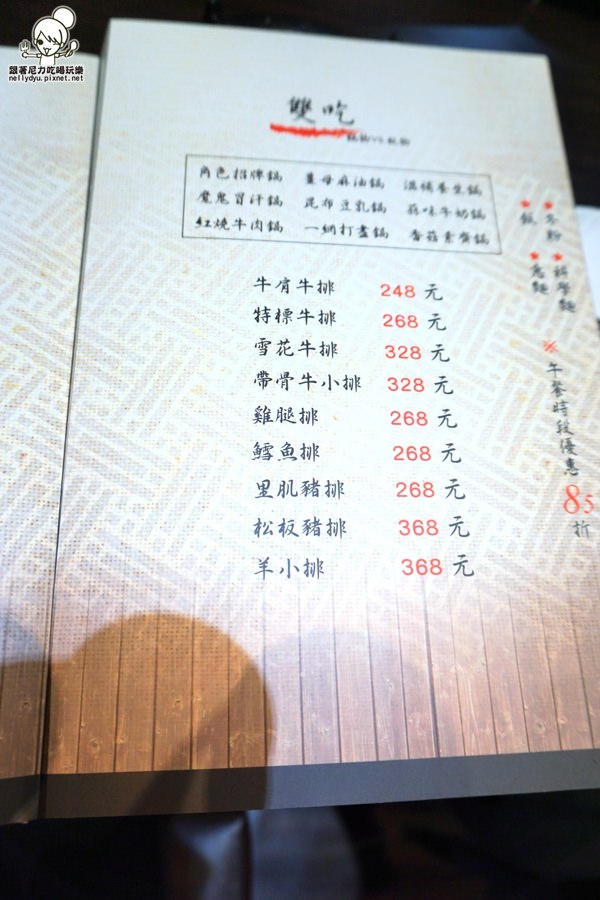 跟著尼力吃喝玩樂
nellydyu.pixnet.net
雙吃
角色招牌鍋 薑母麻油鍋 溫補養生鍋
魔鬼冒汗鍋 昆布豆乳鍋 蒜味牛奶鍋
紅燒牛肉鍋 一網打盡鍋 香菇素齋鍋
牛肩牛排 248 元
特標牛排 268 元
雪花牛排 328 元
帶骨牛小排 328 元
雞腿排 268 元
鱈魚排 268 元
里肌豬排 268 元
松板豬排 368 元
羊小排 368 元
★冬粉 ★科學麵
★飯 ★烏麵
※午餐時段優惠85折